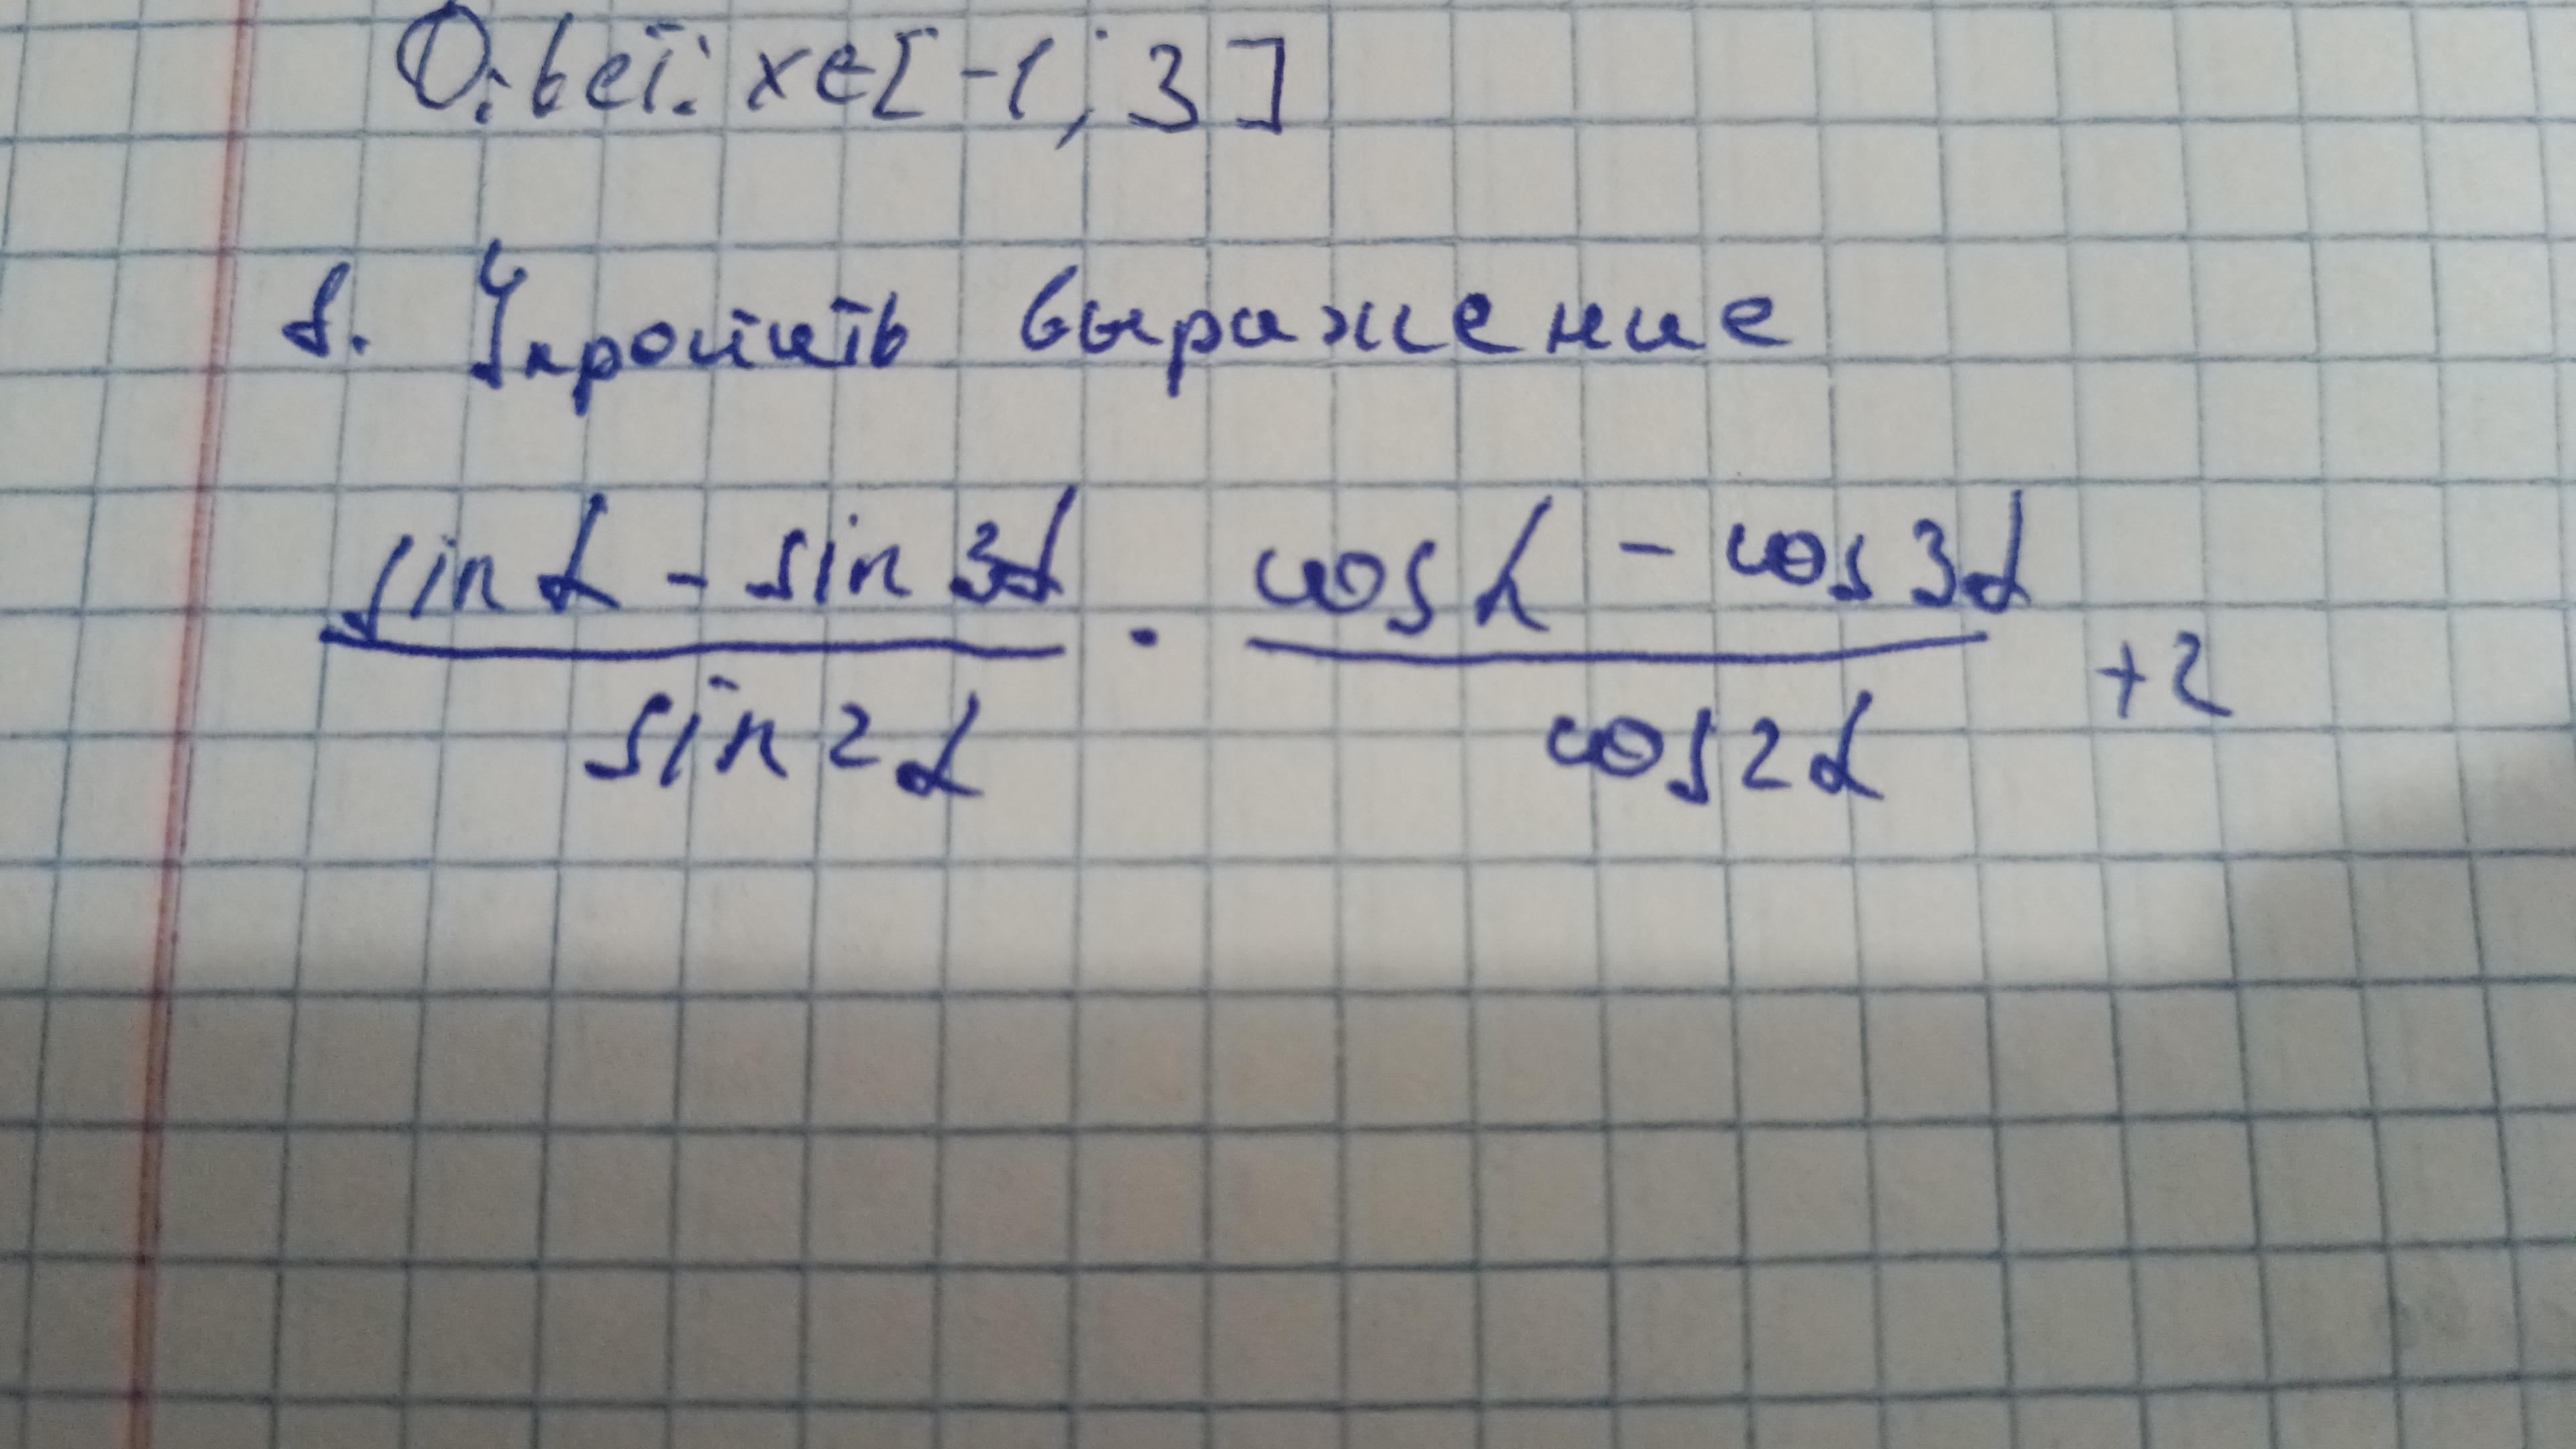 Ответ: x∈[-1; 3]
8. Упростить выражение
sin α - sin 3α / sin 2α · cos α - cos 3α / cos 2α + 2